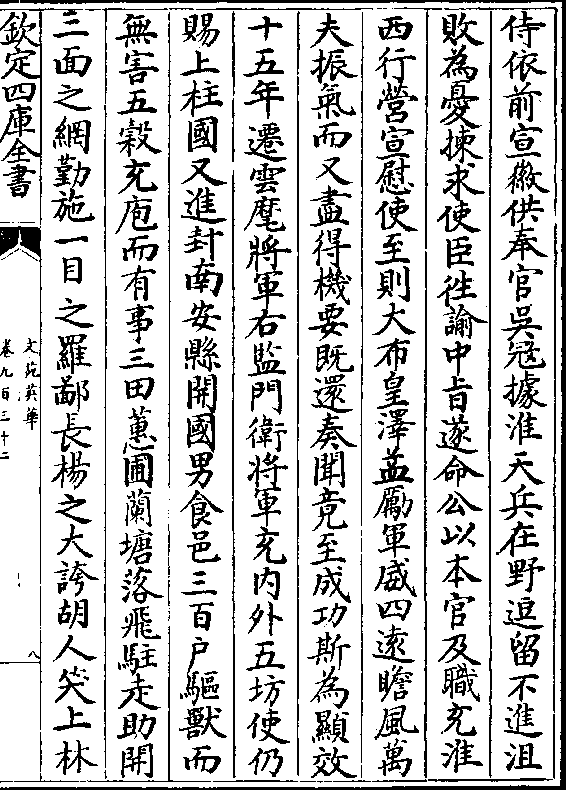 侍依前宣徽供奉官吳寇據淮天兵在野逗留不進沮
敗為憂揀求使臣徃諭中旨遂命公以本官及職充淮
西行營宣慰使至則大布皇澤益勵軍威四遠瞻風萬
夫振氣而又盡得機要既還奏聞竟至成功斯為顯效
十五年遷雲麾將軍右監門衛將軍充内外五坊使仍
賜上柱國又進封南安縣開國男食邑三百户驅獸而
無害五穀充庖而有事三田蕙圃蘭塘落飛駐走助開
三面之網勤施一目之羅鄙長楊之大誇胡人笑上林
欽定四庫全書
文苑英華
卷九百三十二
八